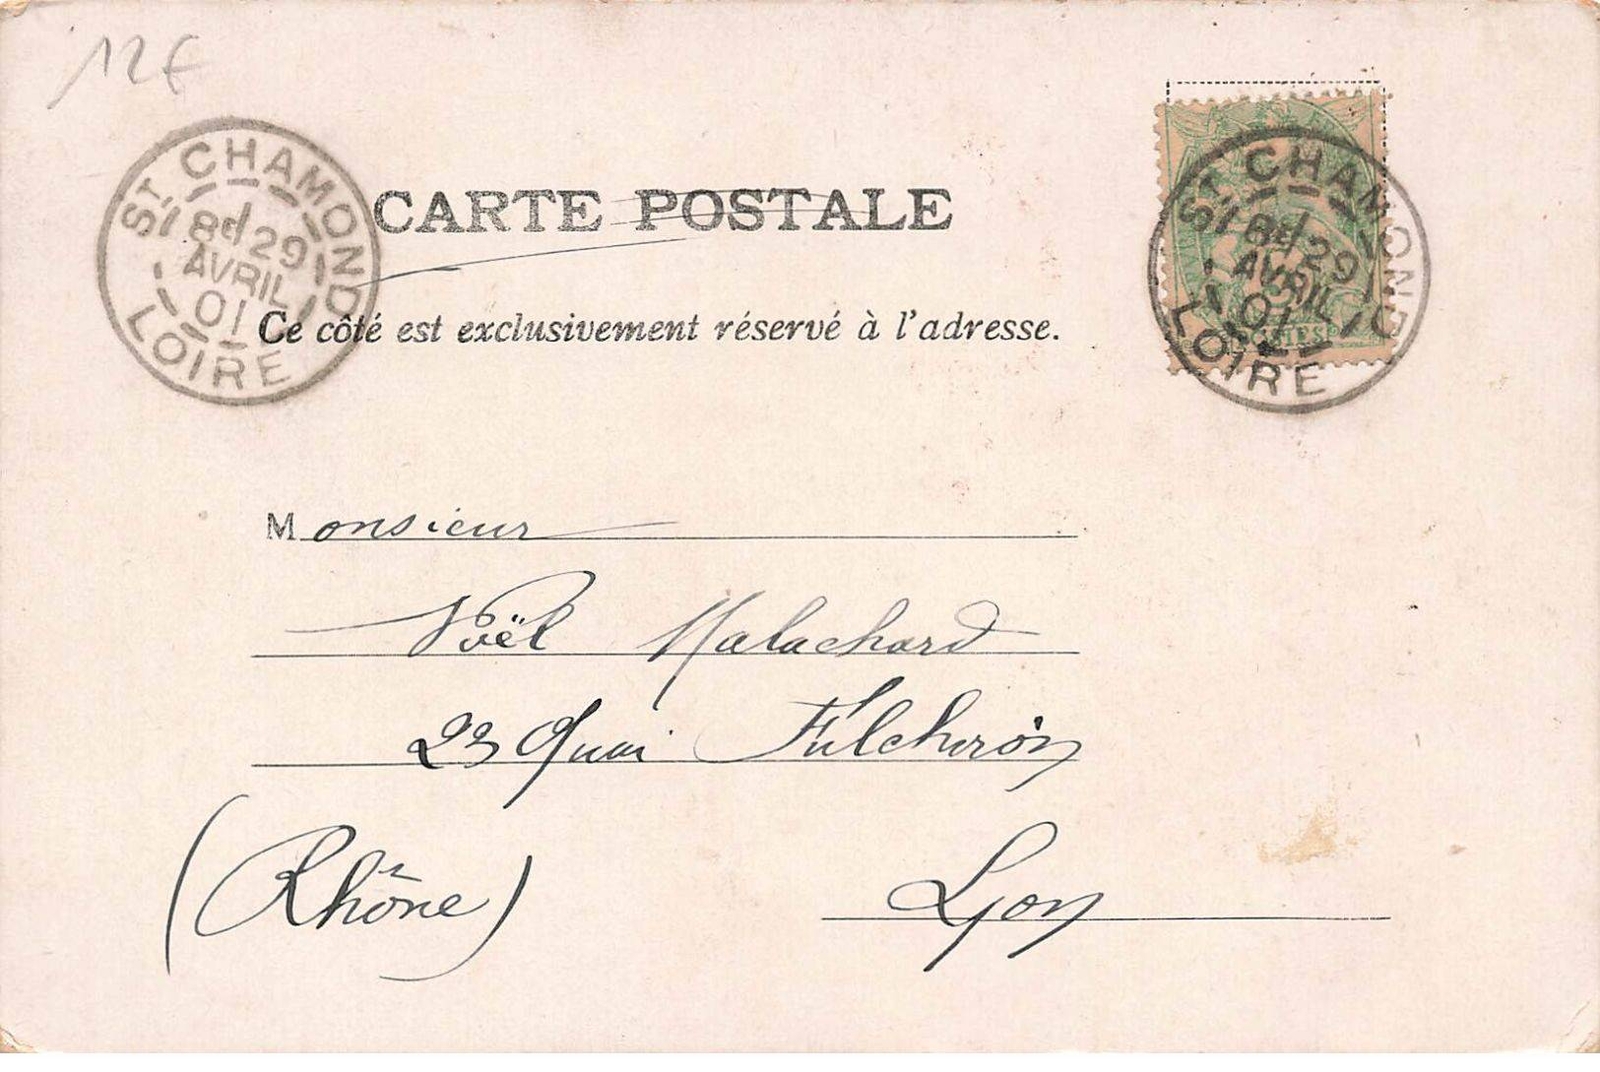 12€
CARTE POSTALE
Ce côté est exclusivement réservé à l'adresse.
ST CHAMOND
8d 29
AVRIL
01
LOIRE
ST CHAMOND
8d 29
AVRIL
01
LOIRE
Monsieur
Noël Malachard
23 Quai Fulchiron
(Rhône) Lyon